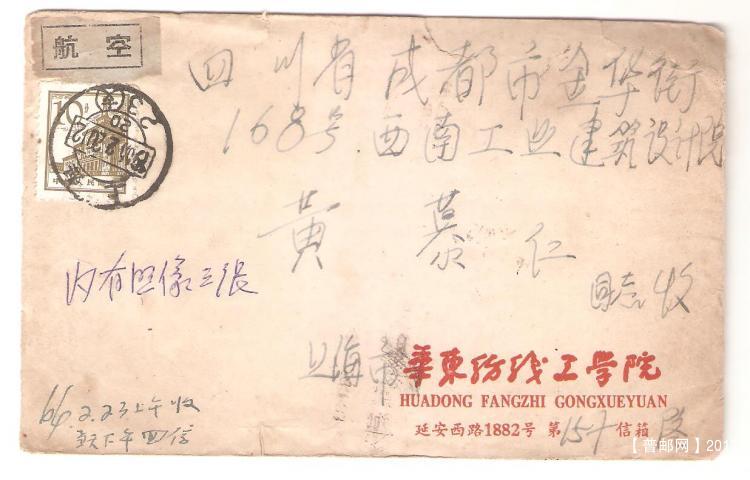 航空
四川省成都市金华街
168号西南工业建筑设计院
黄慕仁
同志收
内有照像三张
上海市 華東纺织工学院
HUADONG FANGZHI GONGXUEYUAN
延安西路1882号 第15-7信箱
66.2.23上午收
下午回信
【普邮网】201